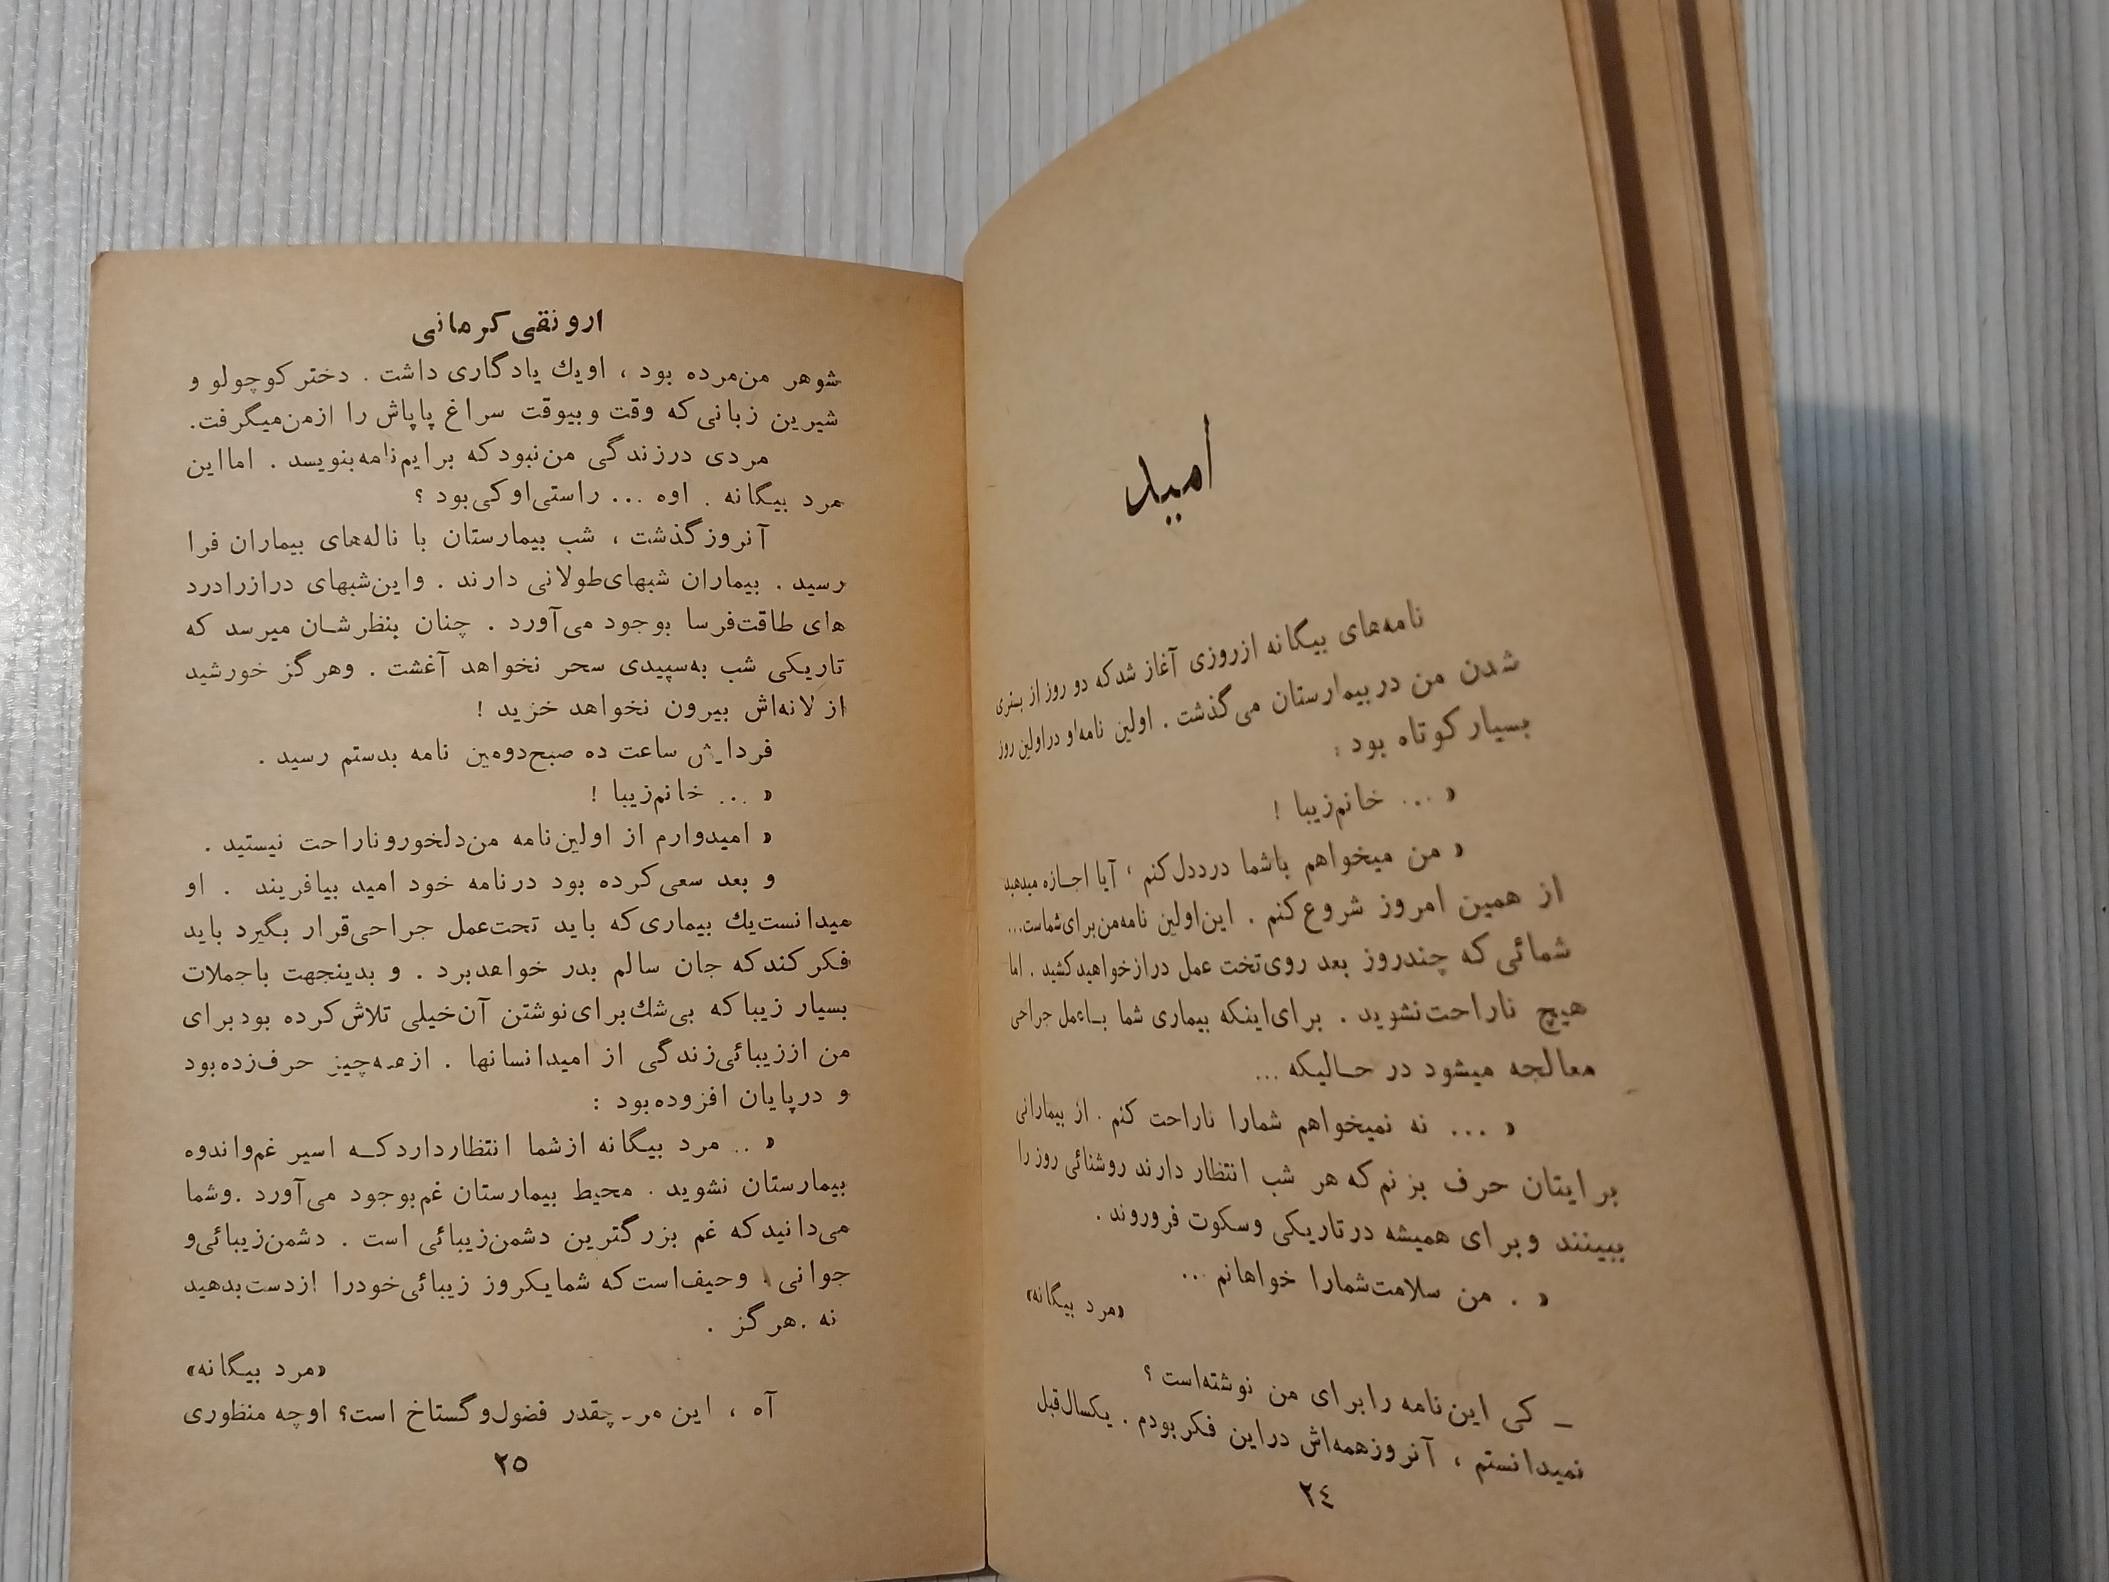 امید
نامه‌های بیگانه ازروزی آغاز شدکه دو روز از بستری
شدن من دربیمارستان می‌گذشت . اولین نامه‌او دراولین روز
بسیارکوتاه بود :
« ... خانم‌زیبا !
« من میخواهم باشما درددل‌کنم ، آیا اجـازه میدهید
از همین امروز شروع‌کنم . این‌اولین نامه‌من‌برای‌شماست...
شمائی که چندروز بعد روی‌تخت عمل درازخواهیدکشید . اما
هیچ ناراحت‌نشوید . برای‌اینکه بیماری شما بـاعمل جراحی
معالجه میشود در حـالیکه ...
« ... نه نمیخواهم شمارا ناراحت کنم . از بیمارانی
برایتان حرف بزنم‌که هر شب انتظار دارند روشنائی روز را
ببینند وبرای همیشه درتاریکی وسکوت فروروند .
« . من سلامت‌شمارا خواهانم ...
«مرد بیگانه»
ـ کی این‌نامه رابرای من نوشته‌است ؟
نمیدانستم ، آنروزهمه‌اش دراین فکربودم . یکسال‌قبل
٢٤
ارونقی‌کرمانی
شوهر من‌مرده بود ، اویك یادگاری داشت . دخترکوچولو و
شیرین زبانی‌که وقت وبیوقت سراغ پاپاش را ازمن‌میگرفت.
مردی درزندگی من‌نبودکه برایم‌نامه‌بنویسد . امااین
مرد بیگانه . اوه ... راستی‌اوکی‌بود ؟
آنروزگذشت ، شب بیمارستان با ناله‌های بیماران فرا
رسید . بیماران شبهای‌طولانی دارند . واین‌شبهای درازرادرد
های طاقت‌فرسا بوجود می‌آورد . چنان بنظرشـان میرسد که
تاریکی شب به‌سپیدی سحر نخواهد آغشت . وهرگز خورشید
از لانه‌اش بیرون نخواهد خزید !
فردایش ساعت ده صبح‌دومین نامه بدستم رسید .
« ... خانم‌زیبا !
« امیدوارم از اولین‌نامه من‌دلخوروناراحت نیستید .
و بعد سعی‌کرده بود درنامه خود امید بیافریند . او
میدانست‌یك بیماری‌که باید تحت‌عمل جراحی‌قرار بگیرد باید
فکرکندکه جان سالم بدر خواهدبرد . و بدینجهت باجملات
بسیار زیباکه بی‌شك‌برای‌نوشتن آن‌خیلی تلاش‌کرده بودبرای
من اززیبائی‌زندگی از امیدانسانها . ازهمه‌چیز حرف‌زده‌بود
و درپایان افزوده‌بود :
« .. مرد بیگانه ازشما انتظارداردکـه اسیر غم‌واندوه
بیمارستان نشوید . محیط بیمارستان غم‌بوجود می‌آورد .وشما
می‌دانیدکه غم بزرگترین دشمن‌زیبائی است . دشمن‌زیبائی‌و
جوانی . وحیف‌است‌که شمایکروز زیبائی‌خودرا ازدست‌بدهید
نه .هرگز .
«مرد بیگانه»
آه ، این مرد چقدر فضول‌وگستاخ است؟ اوچه منظوری
٢٥